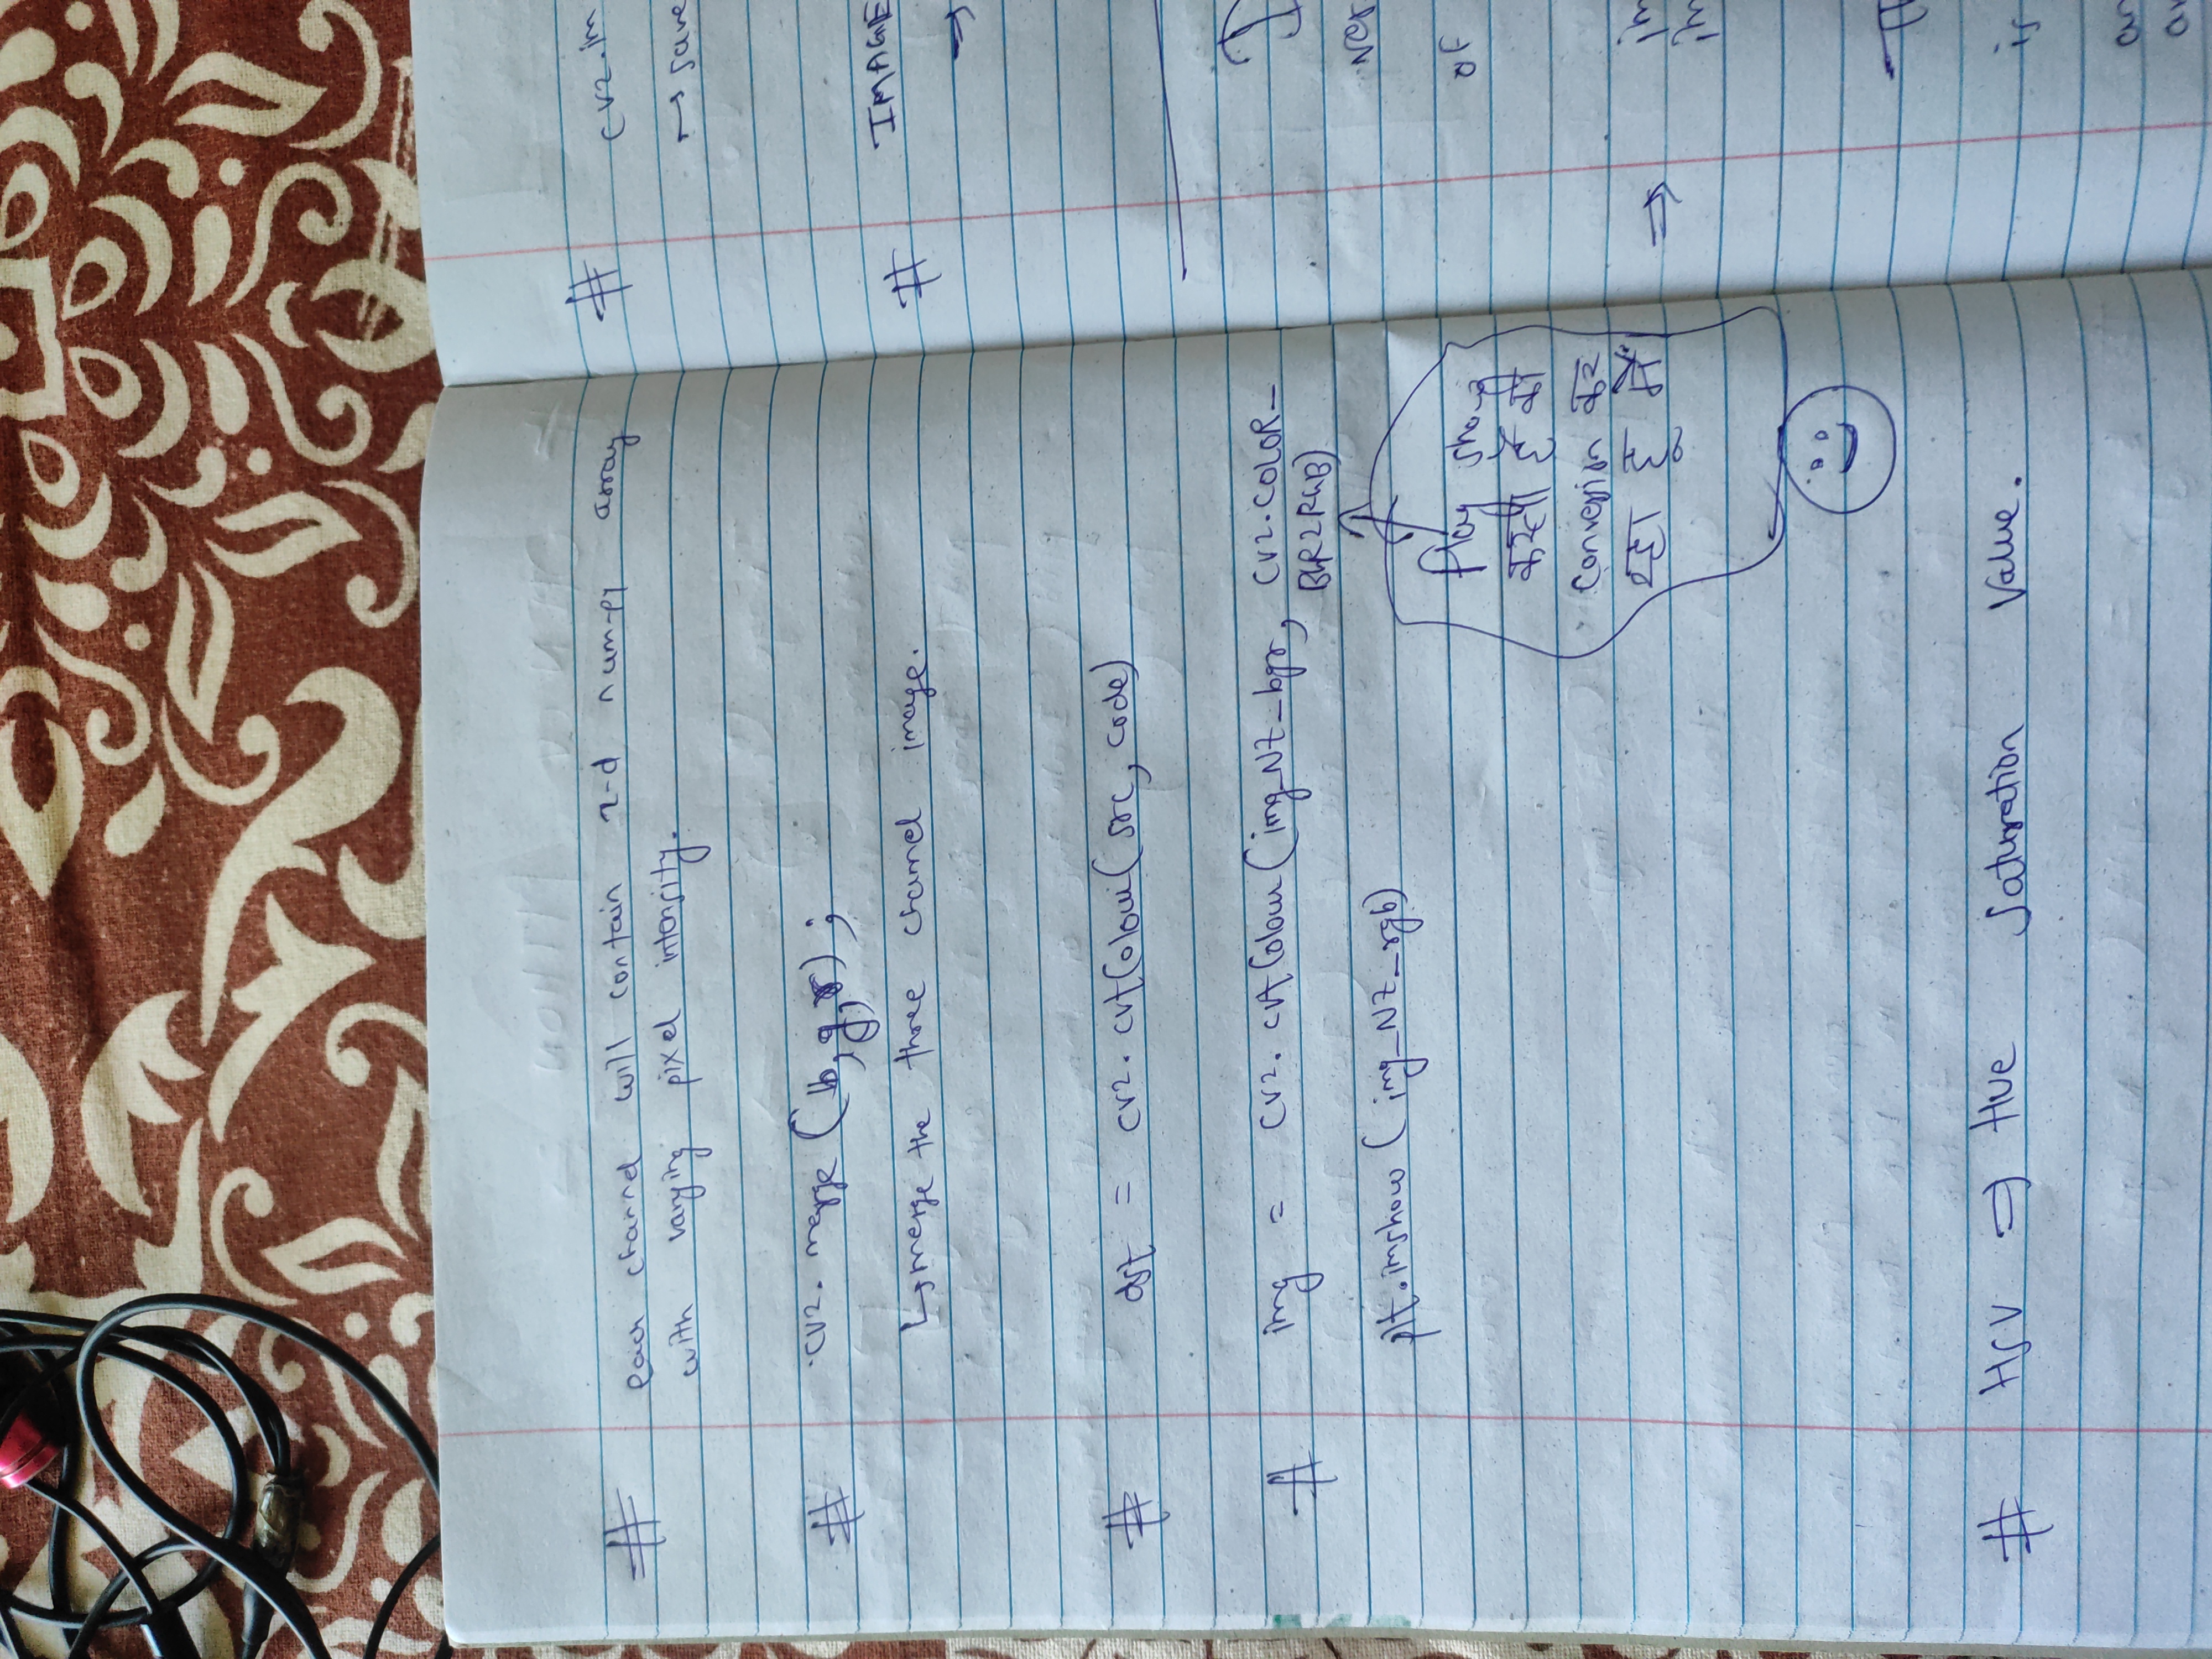 # each channel will contain 2-d numpy array
with varying pixel intensity.
# cv2.merge (b,g,r);
↳ merge the three channel image.
# dst = cv2.cvtColour(src, code)
# img = cv2.cvtColour(img_NZ_bgr, cv2.COLOR_
BGR2RGB)
plt.imshow (img_NZ_rgb)
flag show
करता है की
Conversion कर
रहा है
# HSV ⇒ Hue Saturation Value.
# cv2.im
→ save
# IMAGE
⇒
Not
of
⇒ im
is